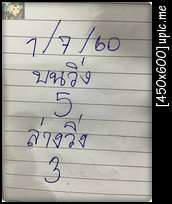 1/7/60
บนวิ่ง
5
ล่างวิ่ง
3
[450x600] upic.me